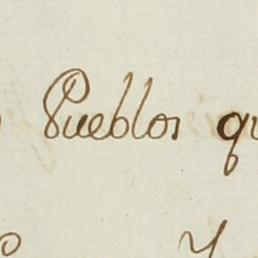 Pueblos qu